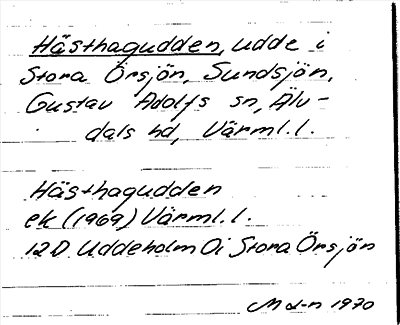 Hästhagudden, udde i
Stora Örsjön, Sundsjön,
Gustav Adolfs sn, Älv-
dals hd, Värml. l.
Hästhagudden
ek (1969) Värml. l.
12 D Uddeholm Öi Stora Örsjön
M L-n 1970